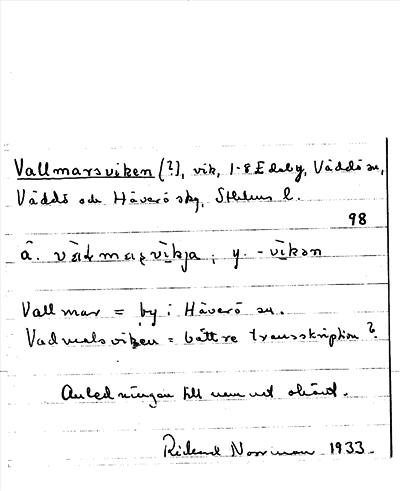 Vallmarsviken (?), vik, 1-8 Edeby, Väddö sn,
Väddö och Häverö skg, Sthlms l.
98
ä. vàɫmaʂvìkja ; y. -vìkən
Vallmar = by i Häverö sn.
Vadmalsviken = bättre transskription?
Anledningen till namnet okänd.
Rickard Norrman 1933.